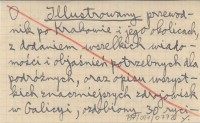 Illustrowany przewod-
nik po Krakowie i jego okolicach,
z dodaniem wszelkich wiado-
mości i objaśnień potrzebnych dla
podróżnych, oraz opisu wszyst-
kich znaczniejszych zdrojowisk
w Galicyi, ozdobiony 30 ryci-